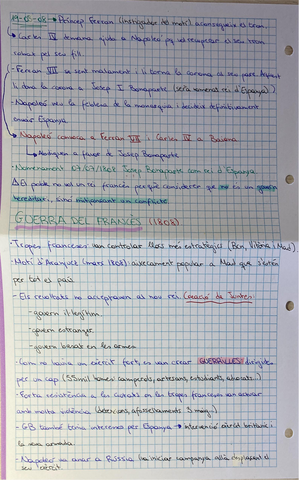 19-03-08 → Príncep Ferran (instigador del motí) aconsegueix el tron.
↳ Carles IV demana ajuda a Napoleó pq vol recuperar el seu tron
robat pel seu fill.
- Ferran VII se sent malament i li torna la corona al seu pare
li dona la corona a Josep I Bonaparte (serà nomenat rei d'Espanya)
- Napoleó veu la feblesa de la monarquia i decideix definitivament
envair Espanya
↳ Napoleó convoca a Ferran VII i Carles IV a Baiona
↳ Abdiquen a favor de Josep Bonaparte
- Nomenament 07/07/1808 Josep Bonaparte com rei d'Espanya.
△ El poble no vol un rei francès perquè considere que no és un
hereditari, sinó mitjançant un conflicte
GUERRA DEL FRANCÈS (1808)
- Tropes franceses van controlar llocs més estratègics (Bcn, Vitòria i Mad)
- Motí d'Aranjuez (març 1808): aixecament popular a Mad que s'estén
per tot el país
- Els revoltats no acceptaven al nou rei. Creació de Juntes:
- govern il·legítim.
- govern estranger.
- govern basat en les armes
- Com no havia un exèrcit fort, es van crear GUERRILLES dirigides
per un cap (55mil homes camperols, artesans, estudiants, advocats..)
- Forta resistència a les ciutats en les tropes franceses van actuar
amb molta violència (detencions, afusellaments 3 maig..)
- GB també tenia interessos per Espanya → Intervenció exèrcit britànic i
la seva armada
- Napoleó va anar a Rússia (ha iniciar campanya allà
el seu exèrcit